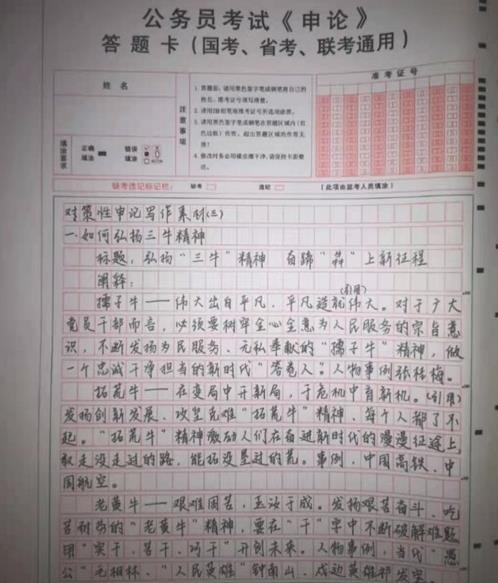 公务员考试《申论》
答题卡（国考、省考、联考通用）
姓名
准考证号
注意事项
填涂要求
正确填涂
错误填涂
缺考违记标记栏：
缺考
违纪
（此项由监考人员填涂）
对策性申论写作素材(三)
一.如何弘扬三牛精神
标题：弘扬“三牛”精神 奋蹄“犇”上新征程
阐释：
(引用)
孺子牛——伟大出自平凡，平凡造就伟大。对于广大
党员干部而言，必须要树牢全心全意为人民服务的宗旨意
识，不断发扬为民服务、无私奉献的“孺子牛”精神，做
一个忠诚干净担当的新时代“答卷人”。人物事例张桂梅。
拓荒牛——在变局中开新局，于危机中育新机。(引用)
发扬创新发展、攻坚克难“拓荒牛”精神，每个人都了不
起。“拓荒牛”精神激励人们在奋进新时代的漫漫征途上，
敢走没走过的路，能拓没垦过的荒。事例，中国高铁、中
国航空。
老黄牛——艰难困苦，玉汝于成。发扬艰苦奋斗、吃
苦耐劳的“老黄牛”精神，要在“干”字中不断破解难题
用“实干、苦干、巧干”开创未来。人物事例，当代“愚
公”毛相林、“人民英雄”钟南山、戍边英雄祁发宝